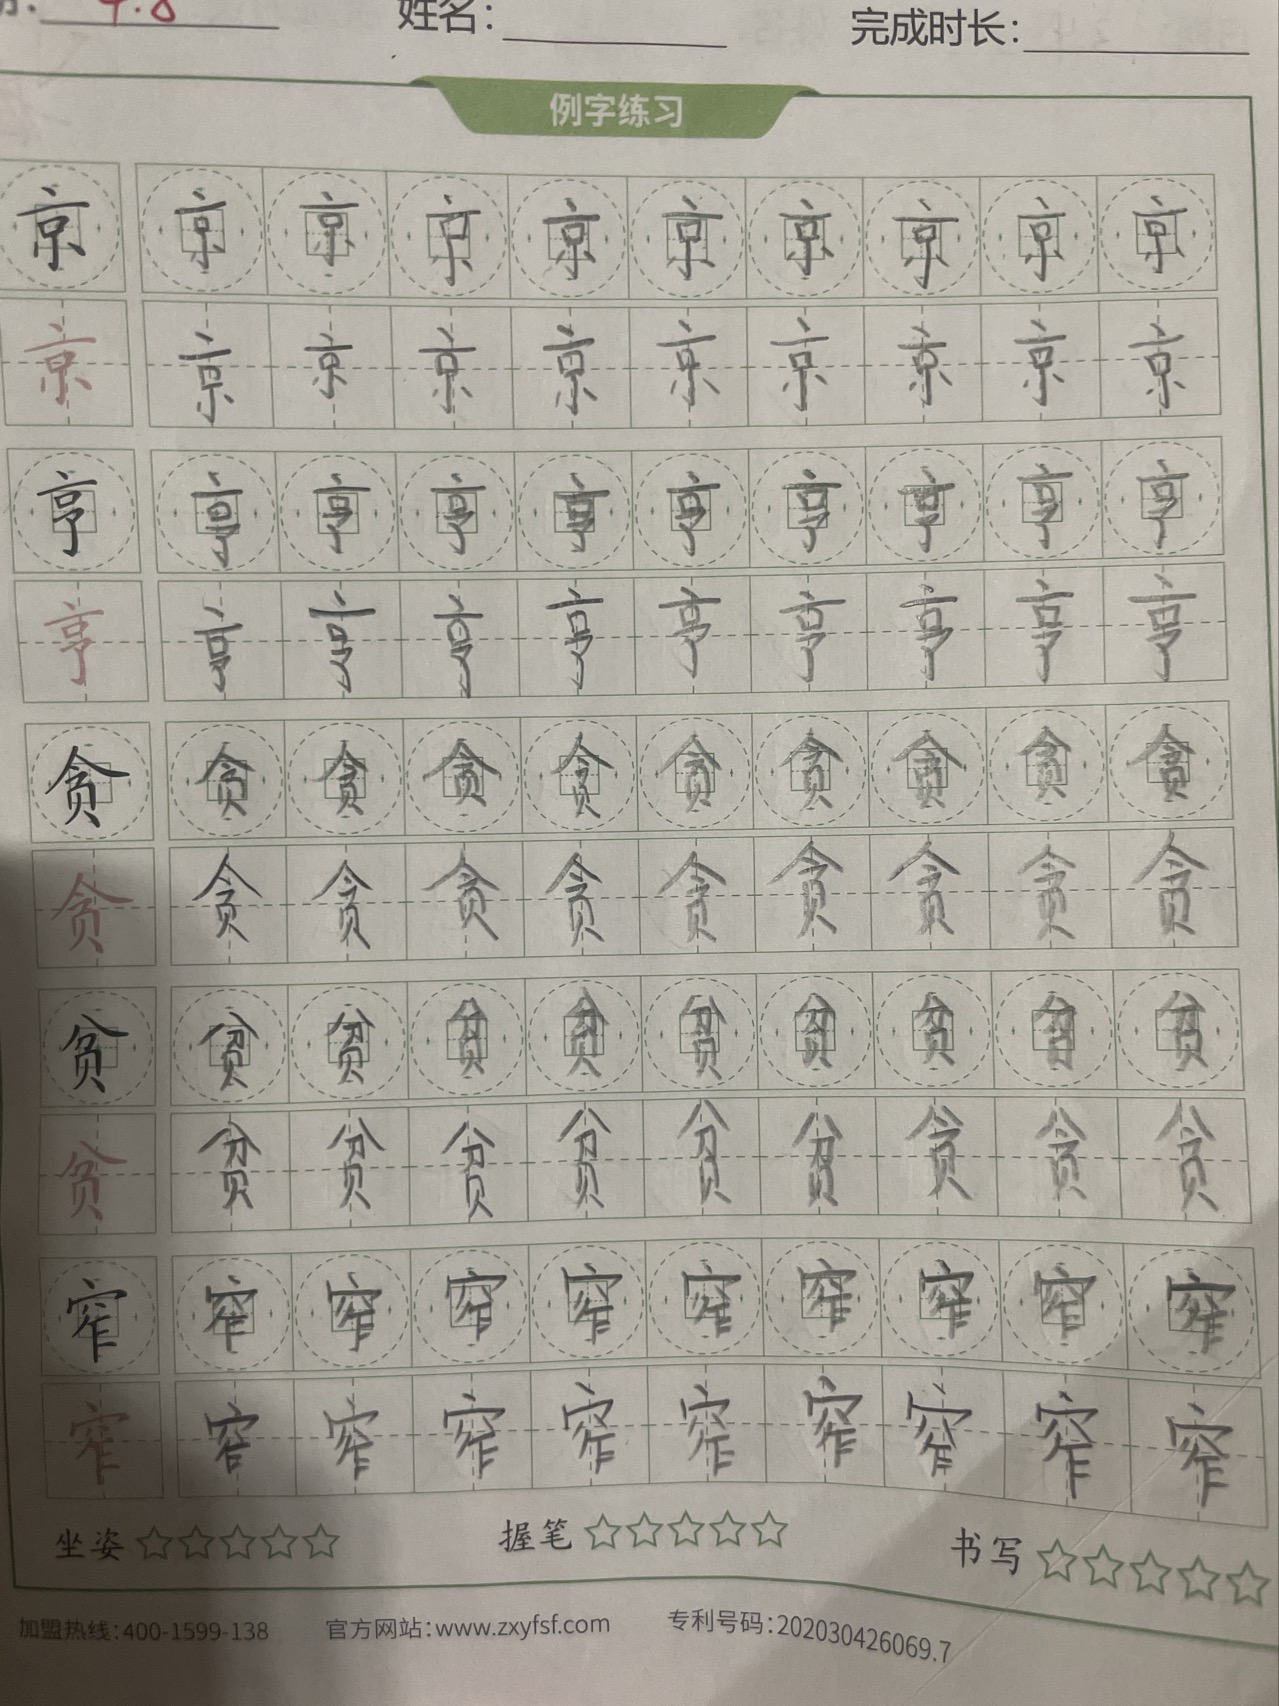 4.8 姓名: 完成时长:
例字练习
京 京 京 京 京 京 京 京 京 京
京 京 京 京 京 京 京 京 京 京
亨 亨 亨 亨 亨 亨 亨 亨 亨 亨
亨 亨 亨 亨 亨 亨 亨 亨 亨 亨
贪 贪 贪 贪 贪 贪 贪 贪 贪 贪
贪 贪 贪 贪 贪 贪 贪 贪 贪 贪
贫 贫 贫 贫 贫 贫 贫 贫 贫 贫
贫 贫 贫 贫 贫 贫 贫 贫 贫 贫
窄 窄 窄 窄 窄 窄 窄 窄 窄 窄
窄 窄 窄 窄 窄 窄 窄 窄 窄 窄
坐姿 握笔 书写
加盟热线:400-1599-138 官方网站:www.zxyfsf.com 专利号码:202030426069.7